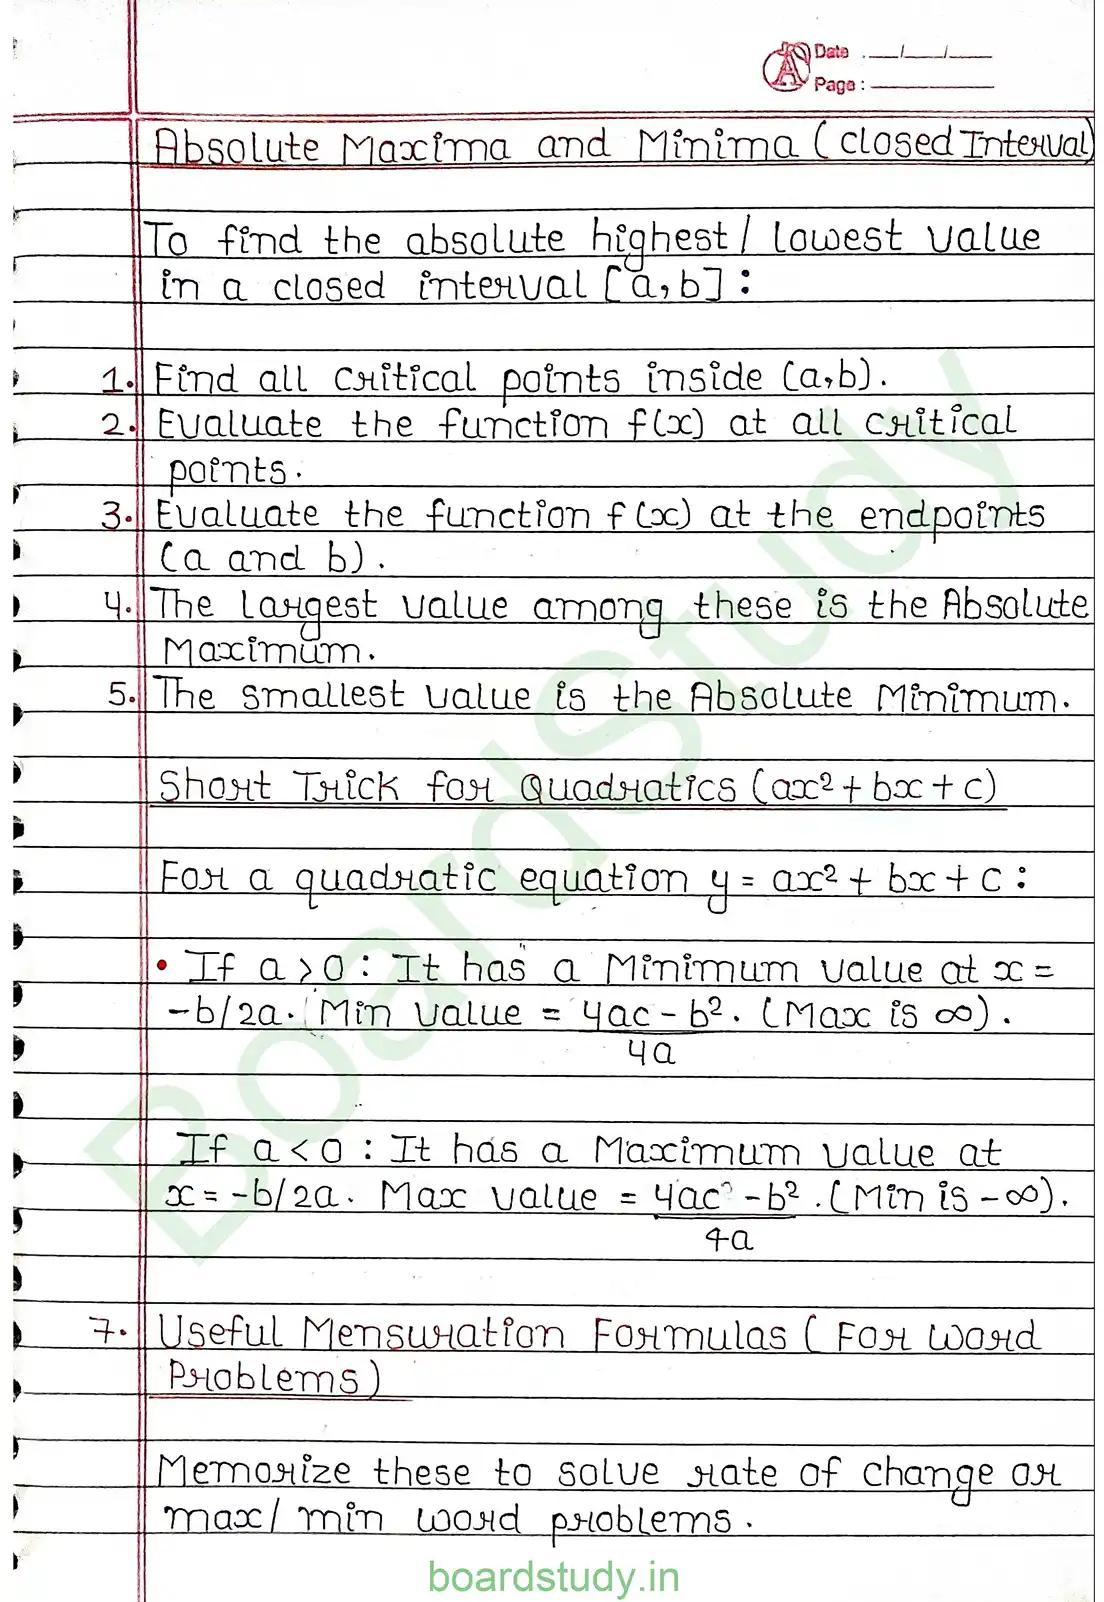 Date : __/__/__
Page : ______
Absolute Maxima and Minima (Closed Interval)
To find the absolute highest / lowest value
in a closed interval [a,b] :
1. Find all critical points inside (a,b).
2. Evaluate the function f(x) at all critical
points.
3. Evaluate the function f(x) at the endpoints
(a and b).
4. The largest value among these is the Absolute
Maximum.
5. The smallest value is the Absolute Minimum.
Short Trick for Quadratics (ax² + bx + c)
For a quadratic equation y = ax² + bx + c :
• If a > 0 : It has a Minimum value at x =
-b/2a. Min value = 4ac - b². (Max is ∞).
4a
If a < 0 : It has a Maximum value at
x = -b/2a. Max value = 4ac - b². (Min is -∞).
4a
7. Useful Mensuration Formulas (For Word
Problems)
Memorize these to solve rate of change or
max/ min word problems.
BoardStudy
boardstudy.in